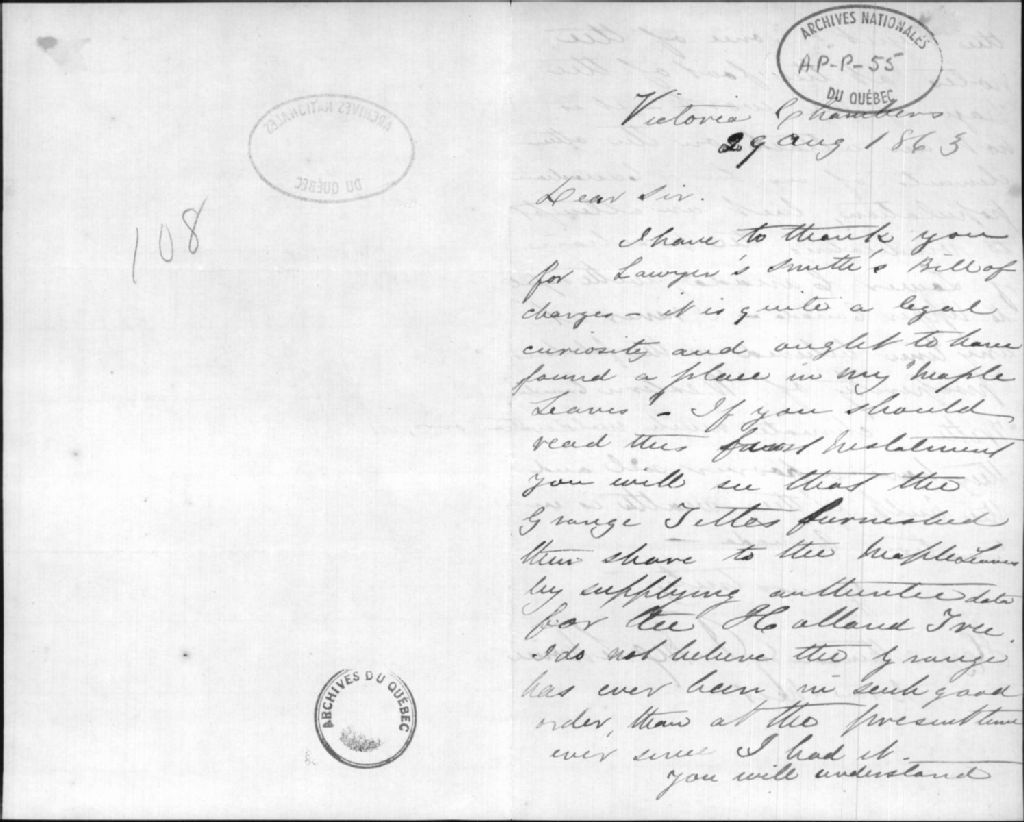 108
ARCHIVES NATIONALES
DU QUÉBEC
ARCHIVES DU QUÉBEC
ARCHIVES NATIONALES
AP-P-55
DU QUÉBEC
Victoria Chambers
29 Aug 1863
Dear Sir.
I have to thank you
for Lawyer's Smith's Bill of
charges - it is quite a legal
curiosity and ought to have
found a place in my "Maple
Leaves - If you should
read this first Instalment
you will see that the
Grange Titles furnished
their share to the Maple Leaves
by supplying authentic data
for the Holland Tree.
I do not believe the Grange
has ever been in such good
order, than at the present time
ever since I had it.
You will understand